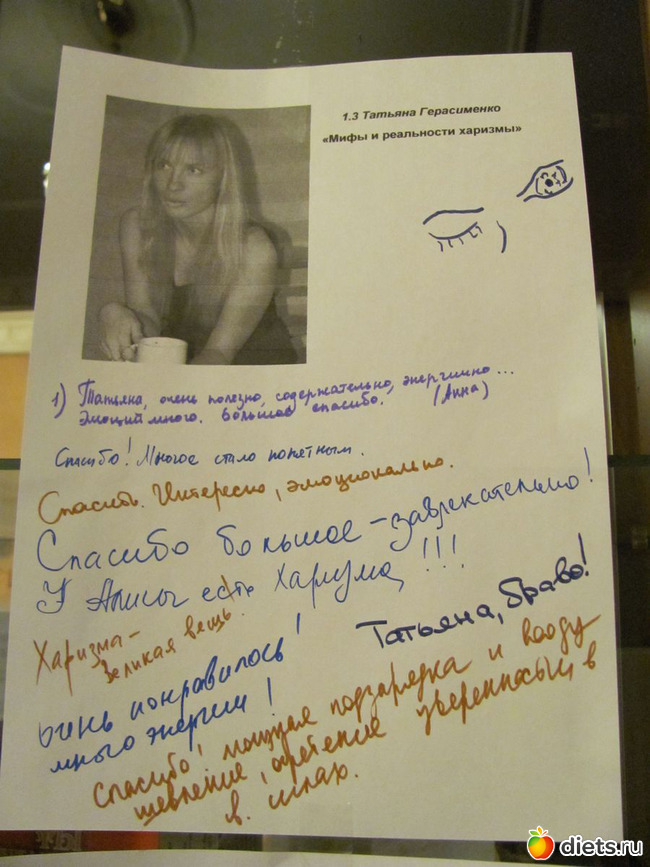 1.3 Татьяна Герасименко
«Мифы и реальности харизмы»
1) Татьяна, очень полезно, содержательно, энергично...
Эмоций много. Большое спасибо. (Анна)
Спасибо! Многое стало понятным.
Спасибо. Интересно, эмоционально.
Спасибо большое - завлекательно!
У Алисы есть Харизма!!!
Харизма -
великая вещь.
Татьяна, браво!
очень понравилось!
много энергии!
Спасибо, мощная подзарядка и вооду
шевление, обретение уверенности в
в.
diets.ru